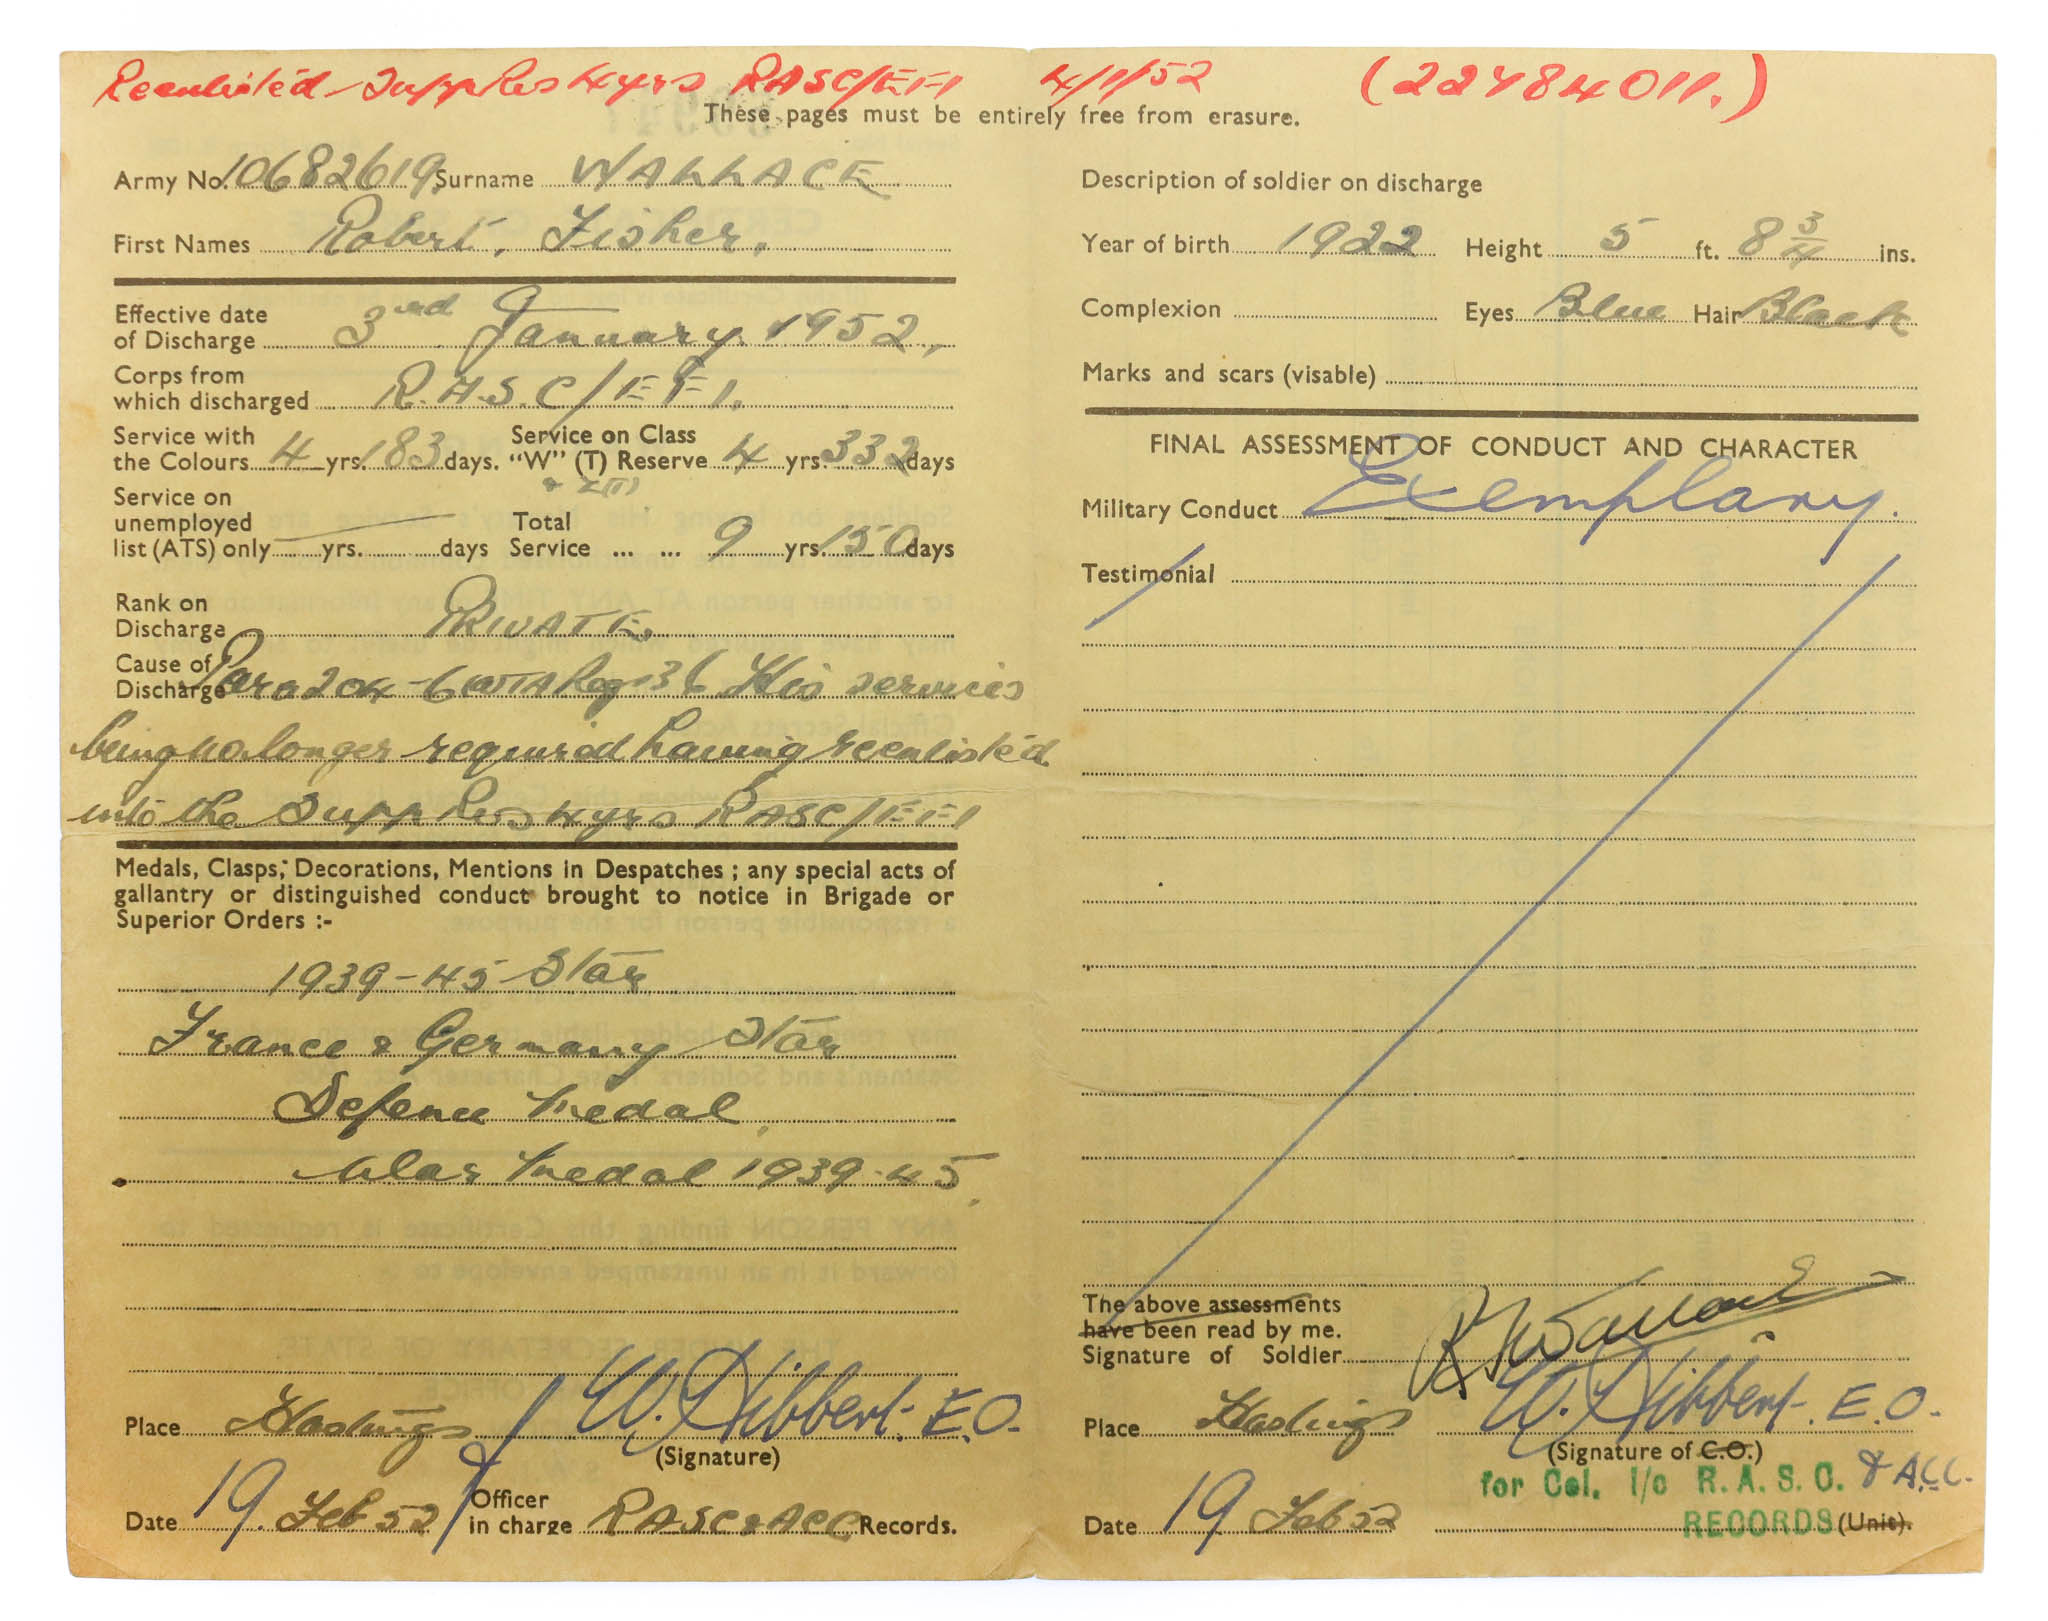 Reenlisted Supp Res 4 yrs RASC/EFI 4/1/52 (22784011.)
These pages must be entirely free from erasure.
Army No. 10682619 Surname WALLACE
First Names Robert, Fisher.
Effective date
of Discharge 3rd January 1952,
Corps from
which discharged R.A.S.C/EFI.
Service with Service on Class
the Colours 4 yrs. 183 days. "W" (T) Reserve 4 yrs. 332 days
& Z(T)
Service on
unemployed Total
list (ATS) only yrs. days Service ... ... 9 yrs. 150 days
Rank on
Discharge PRIVATE.
Cause of
Discharge Para 204 - 6 His services
being no longer required having reenlisted
into the Supp Res 4 yrs RASC/EFI
Medals, Clasps, Decorations, Mentions in Despatches ; any special acts of
gallantry or distinguished conduct brought to notice in Brigade or
Superior Orders :-
1939-45 Star
France & Germany Star
Defence Medal
War Medal 1939-45.
W. Hibbert. E.O.
Place Hastings
(Signature)
Officer
Date 19 Feb 52 in charge RASC & ACC Records.
Description of soldier on discharge
Year of birth 1922 Height 5 ft. 8 3/4 ins.
Complexion Eyes Blue Hair Black
Marks and scars (visable)
FINAL ASSESSMENT OF CONDUCT AND CHARACTER
Military Conduct Exemplary.
Testimonial
The above assessments
have been read by me.
Signature of Soldier R F Wallace
Place Hastings W. Hibbert. E.O.
(Signature of C.O.)
for Col. I/c R.A.S.C. & A.C.C.
Date 19 Feb 52 RECORDS (Unit).